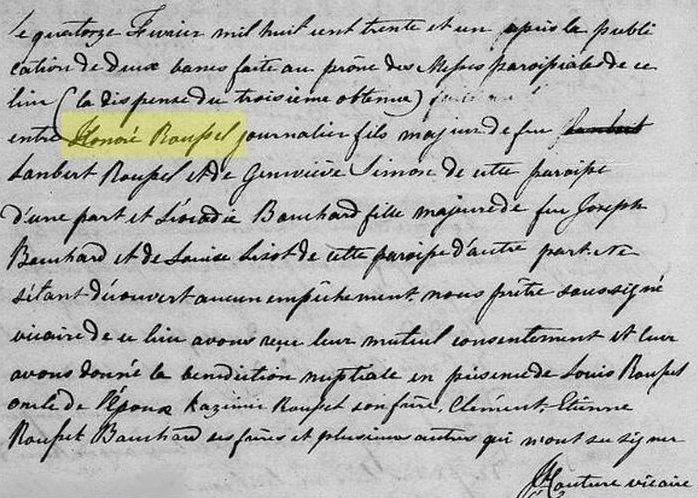 Le quatorze Février mil huit cent trente et un après la publi
cation de deux bancs faite au prône des Messes paroissiales de ce
lieu (la dispense du troisième obtenue)
entre Honoré Roussel journalier fils majeur de feu
Lanbert Roussel et de Geneviève Simose de cette paroisse
d'une part et Léocadie Bouchard fille majeure de feu Joseph
Bouchard et de Louise Lizot de cette paroisse d'autre part. Ne
s'étant découvert aucun empêchement nous prêtre soussigné
vicaire de ce lieu avons reçu leur mutuel consentement et leur
avons donné la benediction nuptiale en présence de Louis Roussel
oncle de l'époux Kazimir Roussel son frère, Clément, Etienne
Roussel Bouchard ses frères et plusieurs autres qui n'ont su signer
Couture vicaire